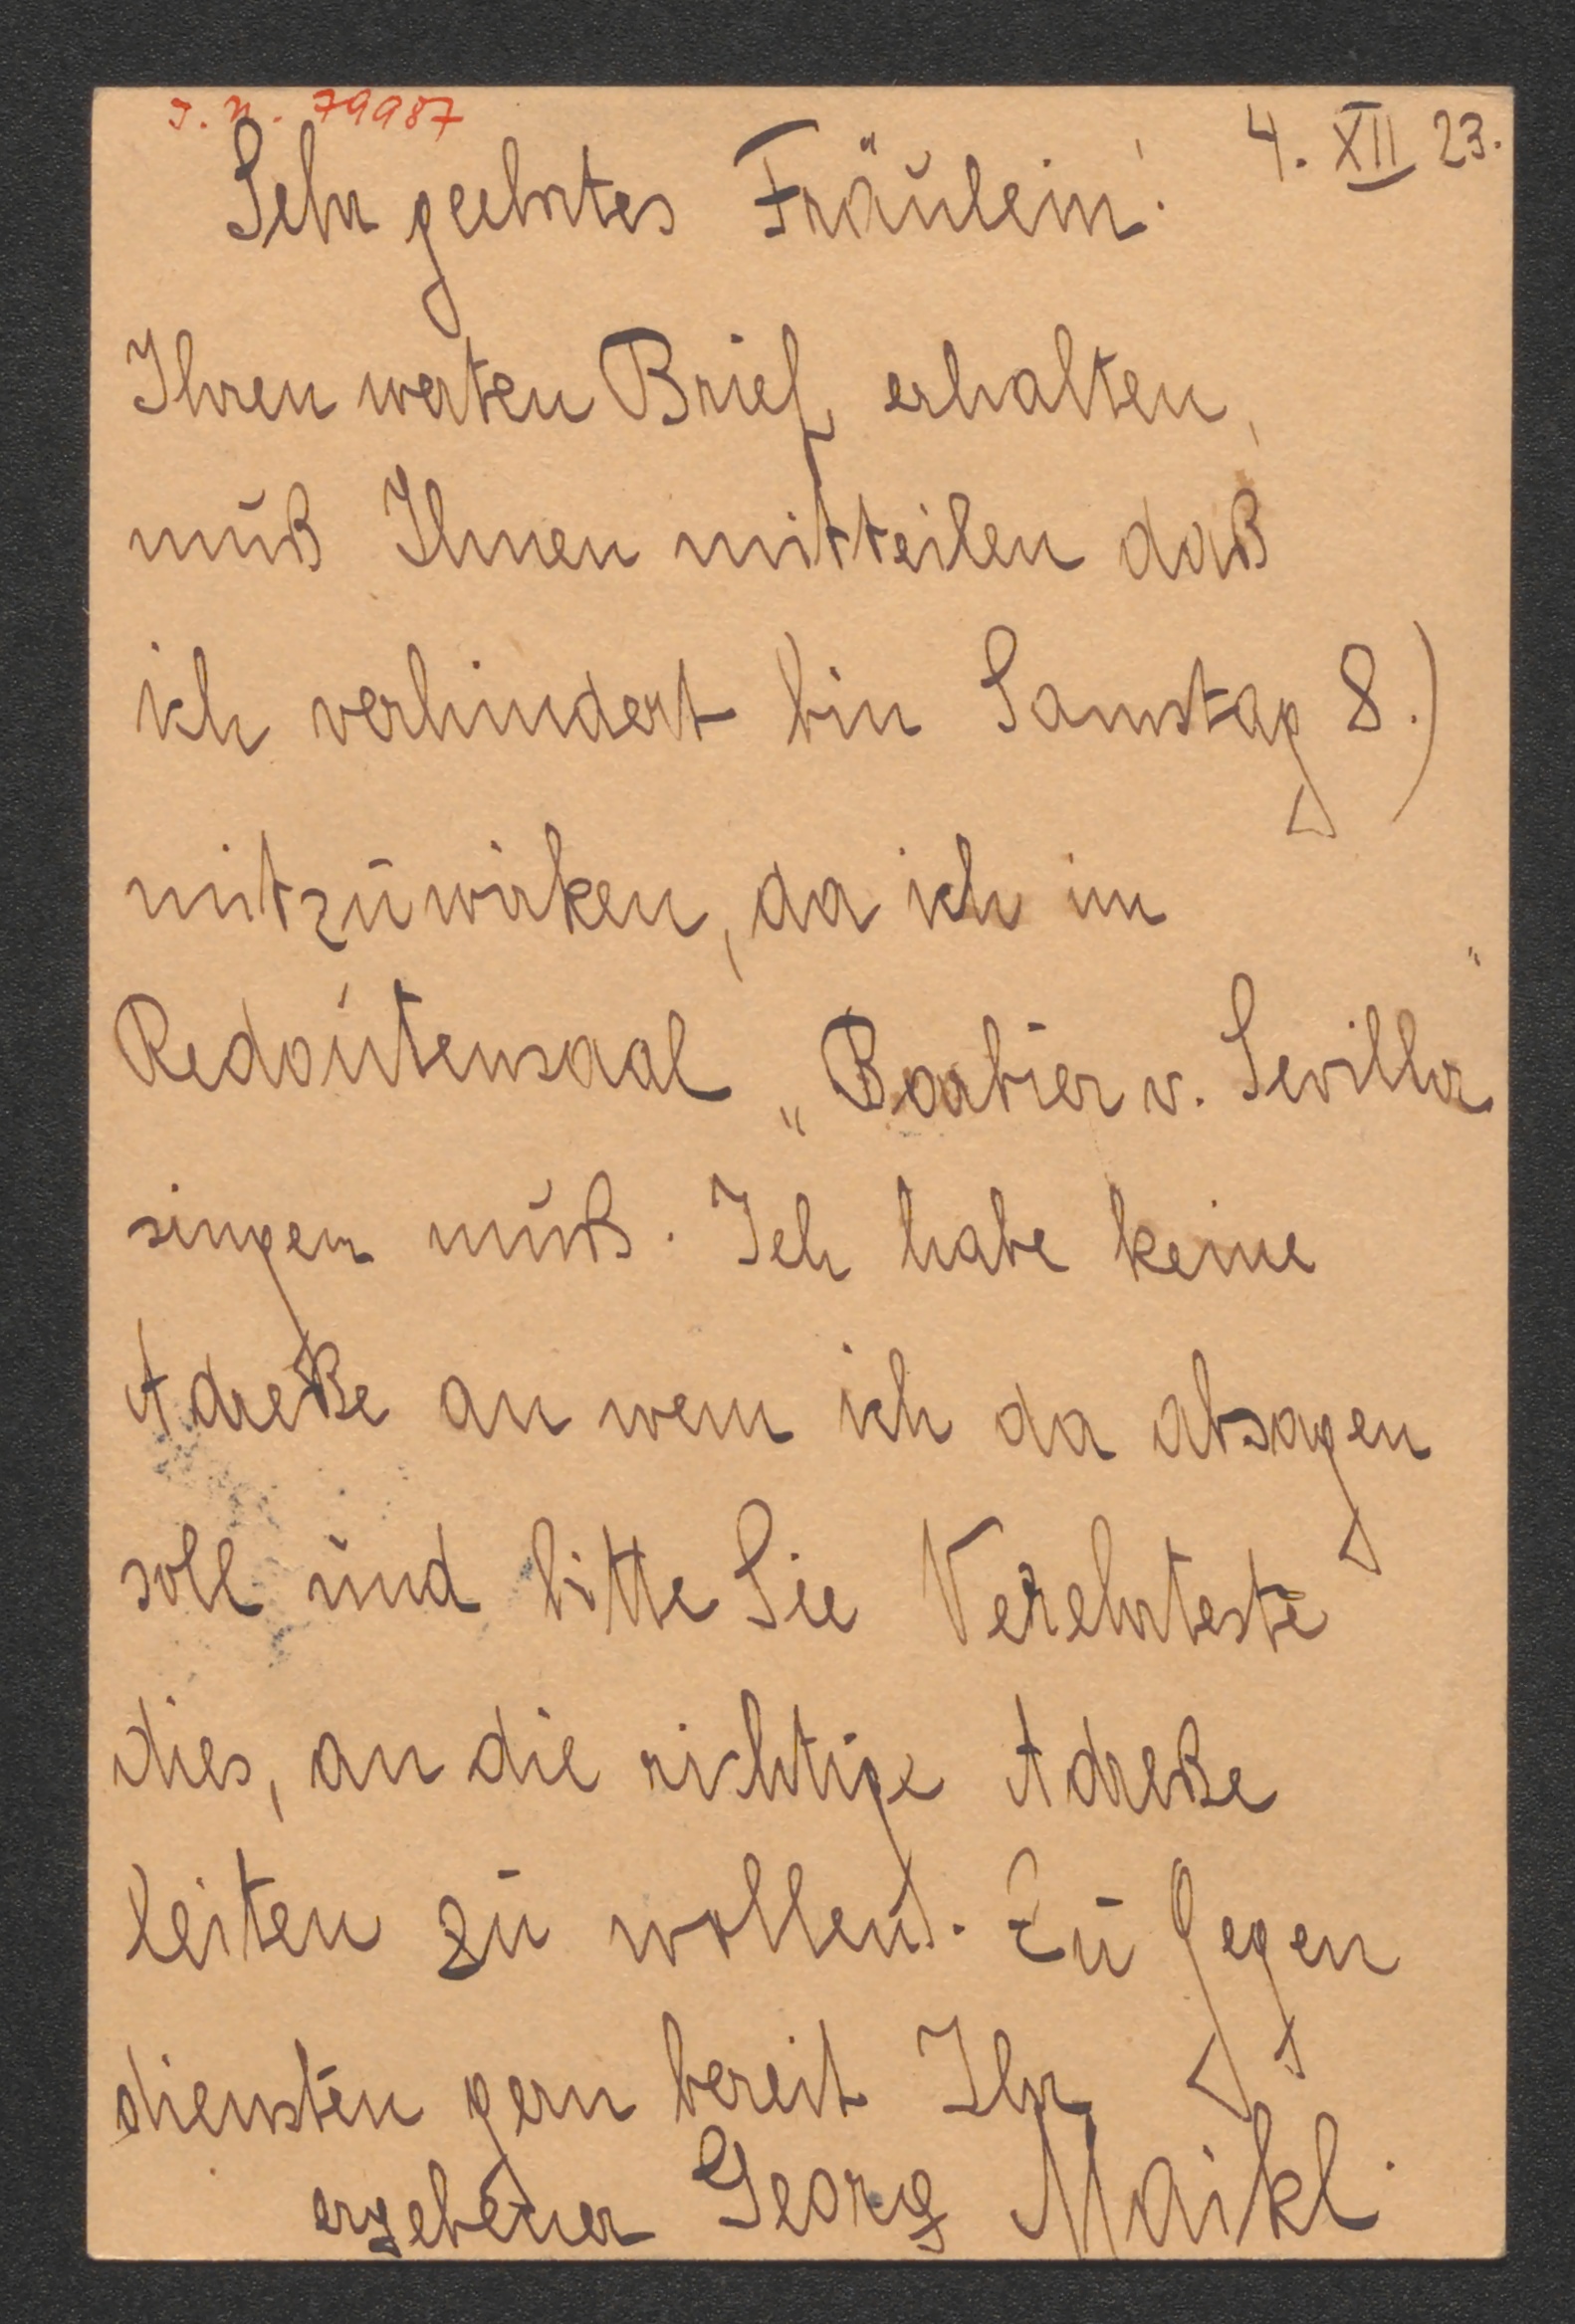 J. N. 79987
4. XII 23.
Sehr geehrtes Fräulein!
Ihren werten Brief erhalten,
muß Ihnen mitteilen daß
ich verhindert bin Samstag 8.)
mitzuwirken, da ich im
Redoutensaal „Barbier v. Sevilla"
singen muß. Ich habe keine
Adreße an wem ich da absagen
soll und bitte Sie Verehrteste
dies, an die richtige Adreße
leiten zu wollen. Zu Gegen
diensten gern bereit Ihr
ergebener Georg Maikl.